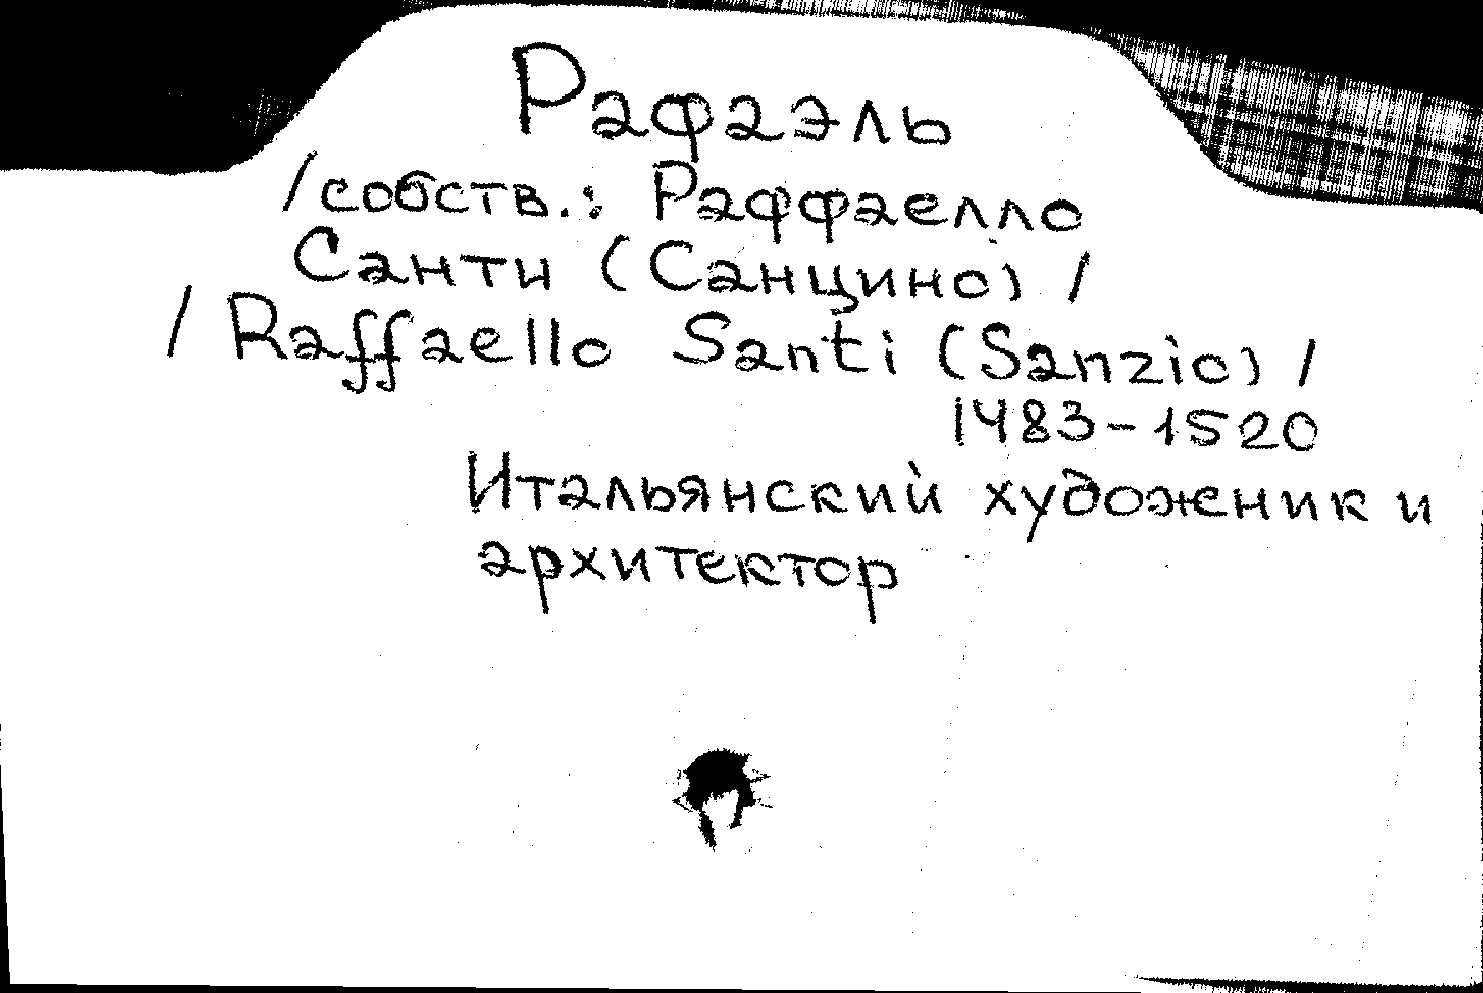 Рафаэль
/собств.: Раффаелло
Санти (Санцино) /
/ Raffaello Santi (Sanzio) /
1483-1520
Итальянский художник и
архитектор